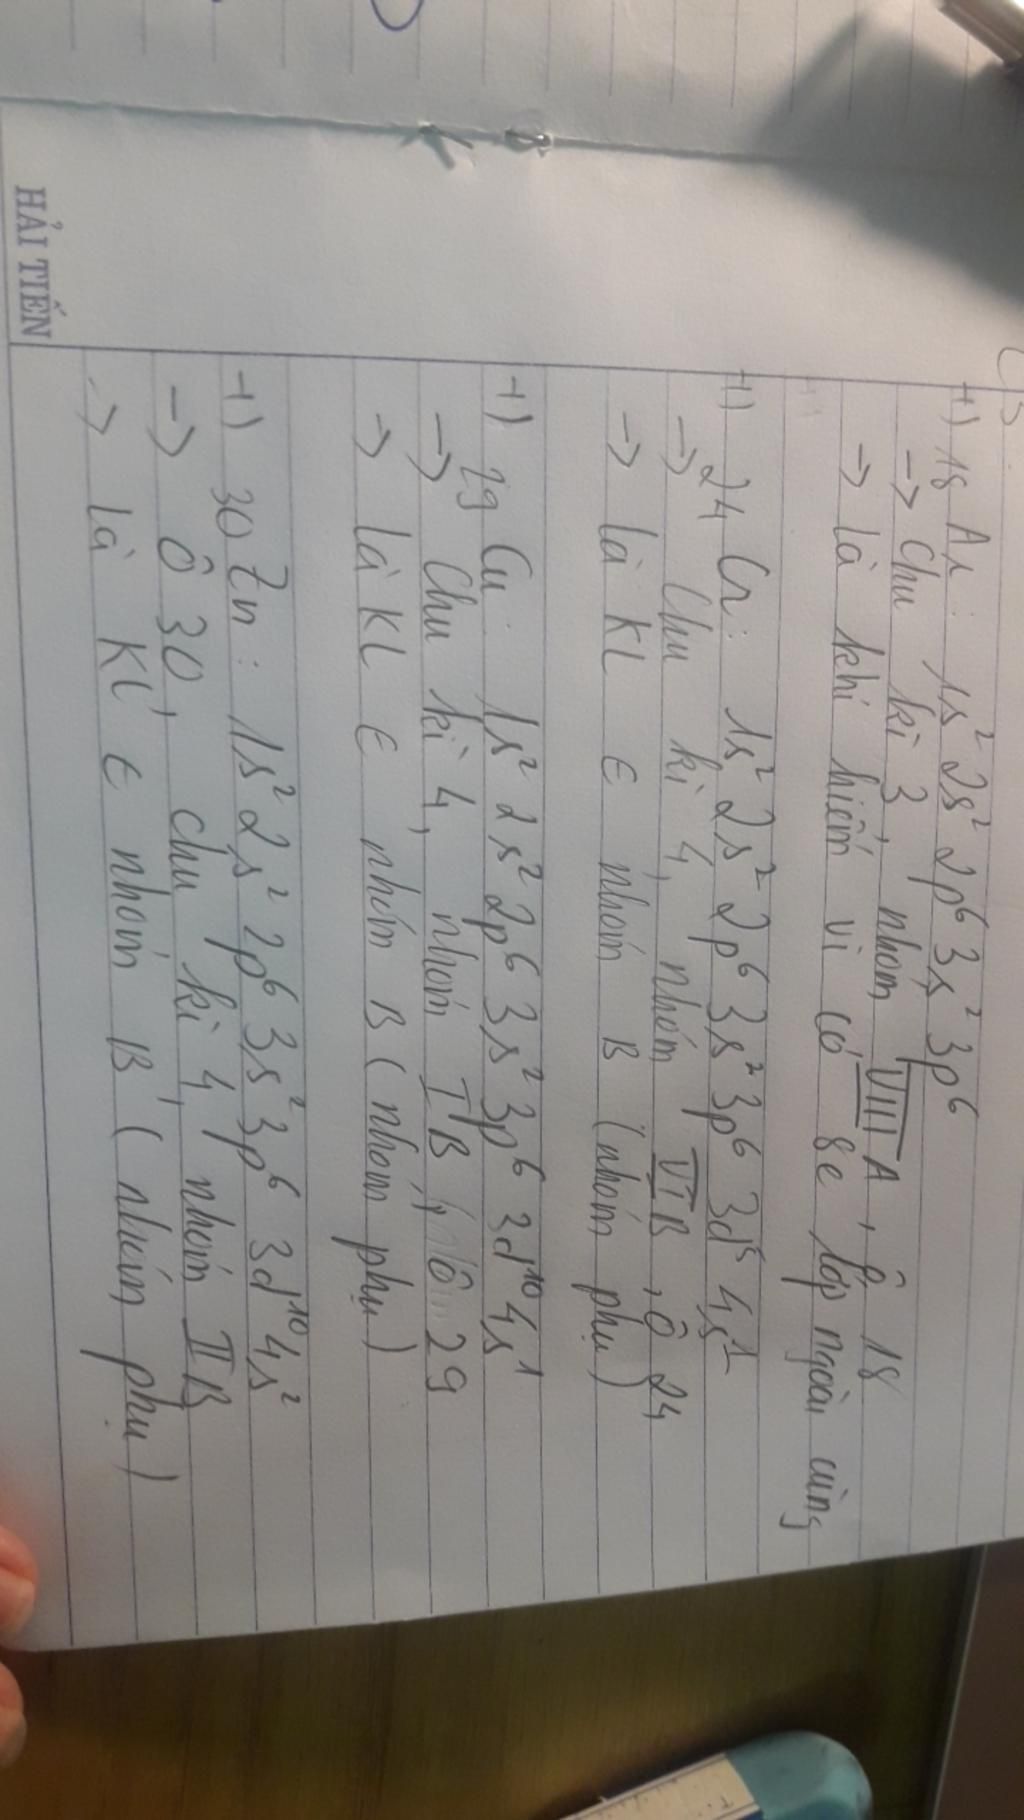 +) 18 Ar : 1s² 2s² 2p⁶ 3s² 3p⁶
-> Chu kì 3, nhóm VIIIA, ô 18
-> là khí hiếm vì có 8e lớp ngoài cùng
+) 24 Cr : 1s² 2s² 2p⁶ 3s² 3p⁶ 3d⁵ 4s¹
-> Chu kì 4, nhóm VIB, ô 24
-> là KL ∈ nhóm B (nhóm phụ)
+) 29 Cu : 1s² 2s² 2p⁶ 3s² 3p⁶ 3d¹⁰ 4s¹
-> Chu kì 4, nhóm IB, ô 29
-> là KL ∈ nhóm B (nhóm phụ)
+) 30 Zn : 1s² 2s² 2p⁶ 3s² 3p⁶ 3d¹⁰ 4s²
-> Ô 30, chu kì 4, nhóm IIB
-> là KL ∈ nhóm B (nhóm phụ)
HẢI TIẾN